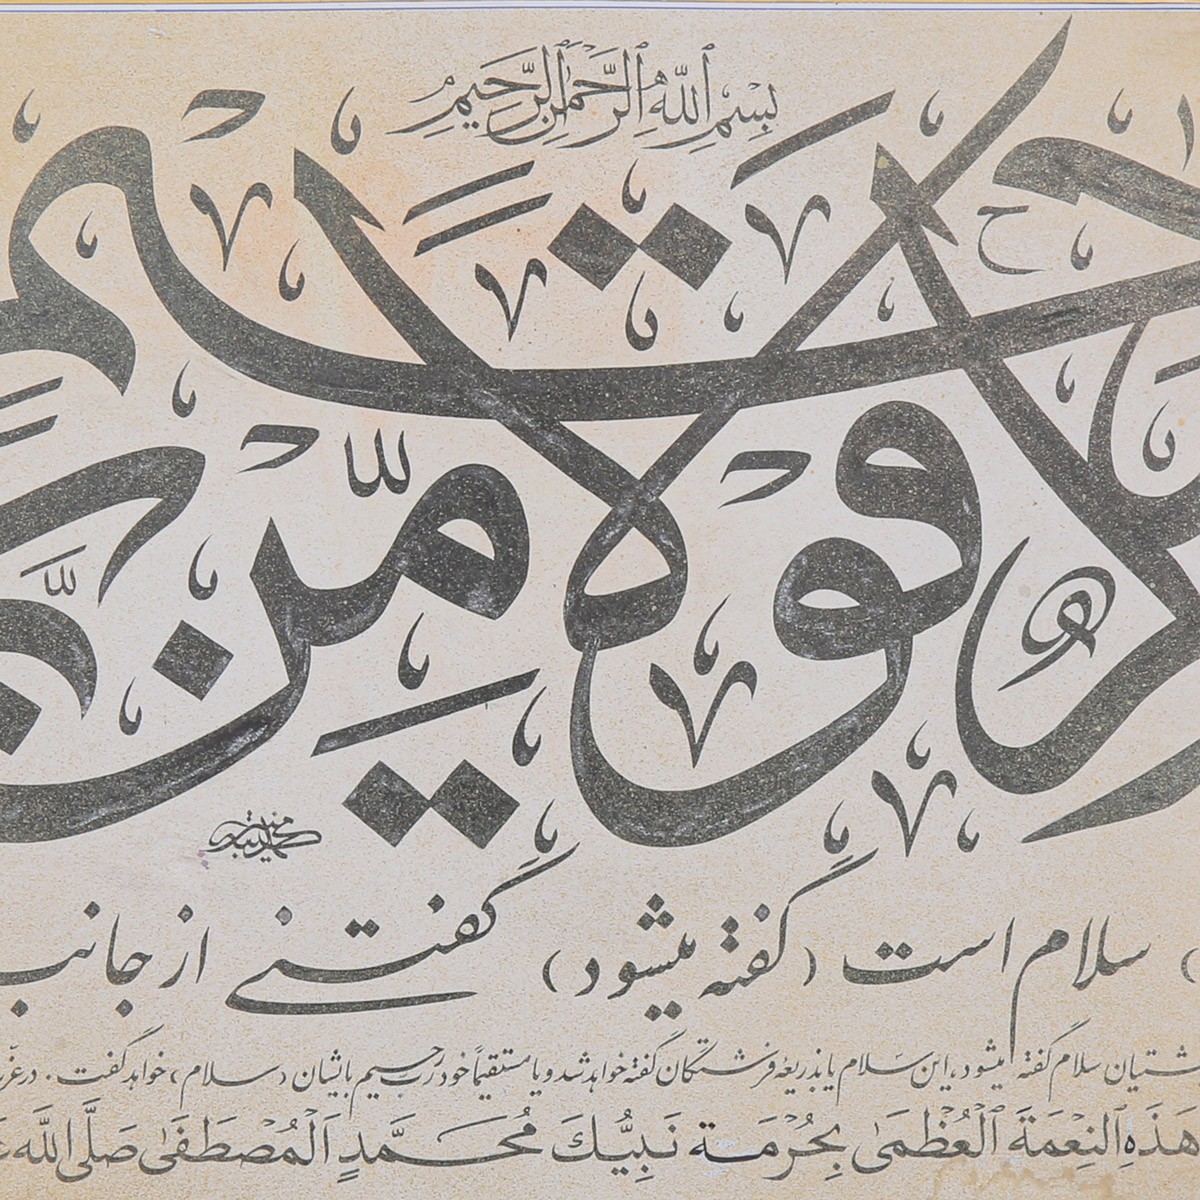 بِسْمِ اللّٰهِ الرَّحْمٰنِ الرَّحِيْمِ
قَوْلًا مِّن
سلام است (گفته میشود) گفتنے از جانب
شتیان سلام گفته میشود، این سلام یا بذریعهٔ فرشتگان گفته خواهد شد و یا مستقیماً خود رب رحیم بایشان (سلام) خواهد گفت. در
هَذَهِ النِعمَةَ الْعُظْمَىٰ بِحُرْمَة نَبِيُّكَ مُحَمَّدٍ الْمُصْطَفَىٰ صَلَّى اللَّه